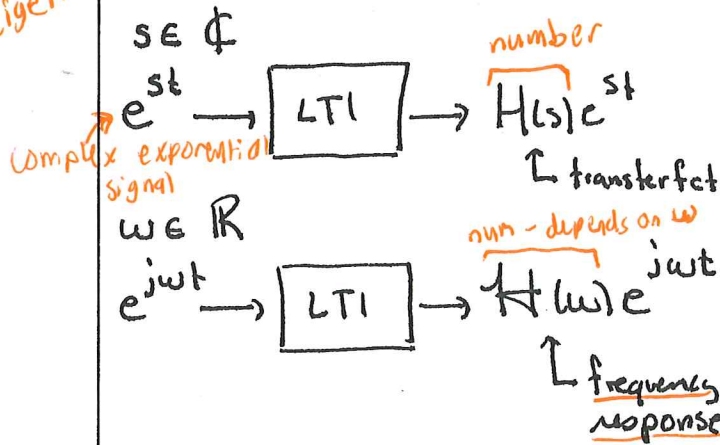 s ∈ ℂ
number
e^{st} → LTI → H(s)e^{st}
complex exponential
signal
transferfct
ω ∈ ℝ
num - depends on ω
e^{jωt} → LTI → H(ω)e^{jωt}
frequency
response